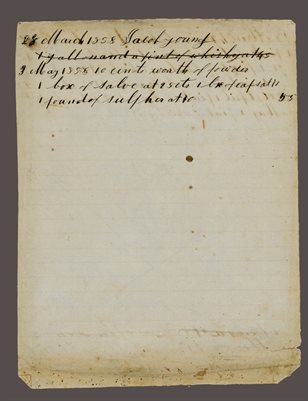 28 March 1858 Jacob young
1 gall and a pint of whisky at 45
3 May 1858 10 cints worth of powder
1 box of salve at 25cts 1 bx of caps at 10
1 pound of sulphor at 10 55